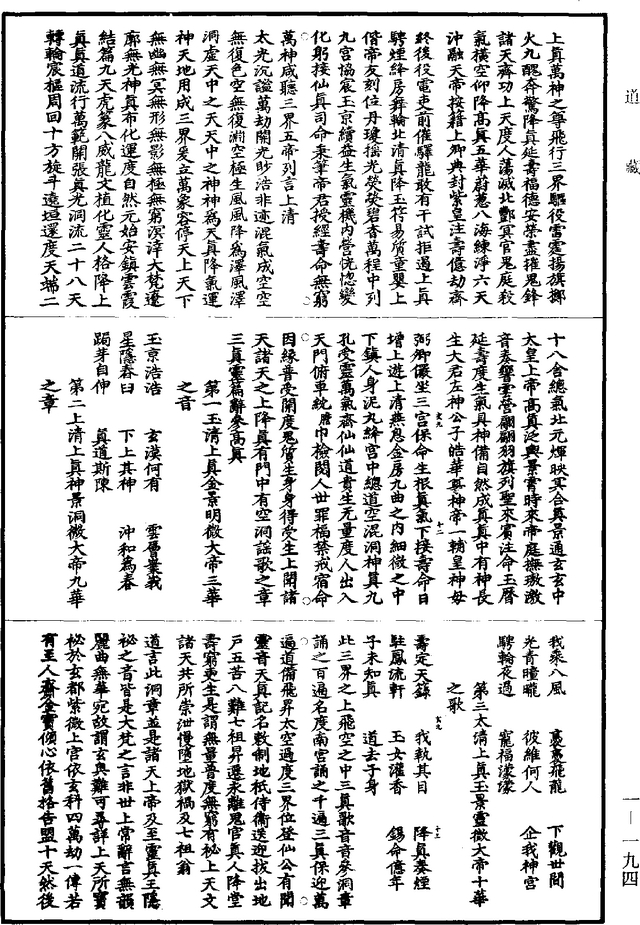 道藏
上真萬神之尊飛行三界驅役雷霆揚旗擲
火九醜奔驚降真延壽福德安榮盡摧鬼鋒
諸天齊功上天度人蕩滅北酆冥官鬼庭殺
氣橫空仰降高真五華蔚蕙八海練淨六天
沖融天帝按籍上卿典封紫皇注壽億劫齊
終後役電吏前催驛龍敢有干試拒遏上真
騁煙絳房舞輪北清真降玉符易質童嬰上
偕帝友刻位丹瓊搖光熒熒碧杳萬程中列
九宮協晨玉京續益生氣靈機內營恍惚變
化躬接仙真司命秉筆帝君授經壽命無窮
萬神咸聽三界五帝列言上清
太光沉謐萬劫開光眇浩非迹混氣成空空
無復色空無復淵空極生風風降為澤風澤
洞虛天中之天天中之神神為天真降氣運
神天地用成三界爰立萬象容停天上天下
無幽無冥無形無影無極無窮溟涬大梵遼
廓無光神真布化運度自然元始安鎮雲霞
結篇九天虎篆八威龍文植化靈人格降上
真真道流行萬範開張真光洞流二十八天
轉輪宸樞周回十方旋斗遶垣還度天端二
十八舍總氣北元煇映冥合真景通玄玄中
太皇上帝高真泛輿景霄時來帝庭撫璈激
音奏響雲營翩翩羽旗列聖來賓注命玉曆
延壽度生氣具神備自然成真真中有神長
生大君左神公子皓華尊神帝一輔皇神母
弼卿儼坐三宮保命生根真氣下接壽命日
增上遊上清燕息金房九曲之内細微之中
下鎮人身泥丸絳宮中總道空混洞神真九
孔受靈萬氣齋仙仙道貴生无量度人出入
天門俯車統檐巾檢閱人世罪福禁戒宿命
因緣普受開度鬼質生身身得受生上聞諸
天諸天之上降真有門中有空洞謠歌之章
三真靈篇辭參高真
第一玉清上真金景明微大帝三華
之音
玉京浩浩　玄漠何有　雲層業峩
星隱春日　下上其神　沖和為春
躅芽自伸　真道斯陳
第二上清上真神景洞微大帝九華
之章
我乘八風　裊裊飛龍　下觀世間
光青瞳曨　彼維何人　企我神宮
騁輪夜過　寵福濛濛
第三太清上真玉景靈微大帝十華
之歌
壽定天籙　我執其目　降真奏煙
駐鳳流軒　玉女灌香　錫命億年
子未知真　道去子身
此三界之上飛空之中三真歌音音參洞章
誦之百遍名度南宮誦之千遍三真保迎萬
遍道備飛昇太空過度三界位登仙公有聞
靈音天真記名敕制地祇侍衛送迎拔出地
戶五苦八難七祖昇遷永離鬼官真人降堂
壽窮更生是謂無量普度無窮有祕上天文
諸天共所崇泄慢墮地獄禍及七祖翁
道言此洞章並是諸天上帝及至靈真王隱
祕之音皆是大梵之言非世上常辭言無韻
麗曲無華宛故謂玄奧難可尋詳上天所寶
祕於玄都紫微上宮依玄科四萬劫一傳若
有至人齎金寶傾心依舊格告盟十天然後
一—一九四